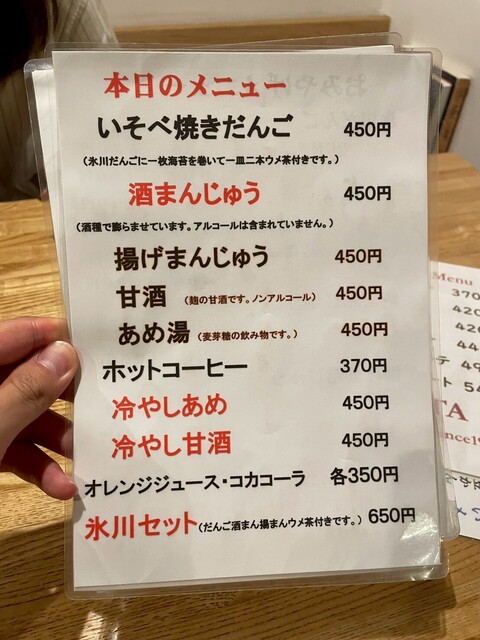 本日のメニュー
いそべ焼きだんご 450円
(氷川だんごに一枚海苔を巻いて一皿二本ウメ茶付きです。)
酒まんじゅう 450円
(酒種で膨らませています。アルコールは含まれていません。)
揚げまんじゅう 450円
甘酒 (麹の甘酒です。ノンアルコール) 450円
あめ湯 (麦芽糖の飲み物です。) 450円
ホットコーヒー 370円
冷やしあめ 450円
冷やし甘酒 450円
オレンジジュース・コカコーラ 各350円
氷川セット(だんご酒まん揚まんウメ茶付きです。) 650円
Menu
370
420